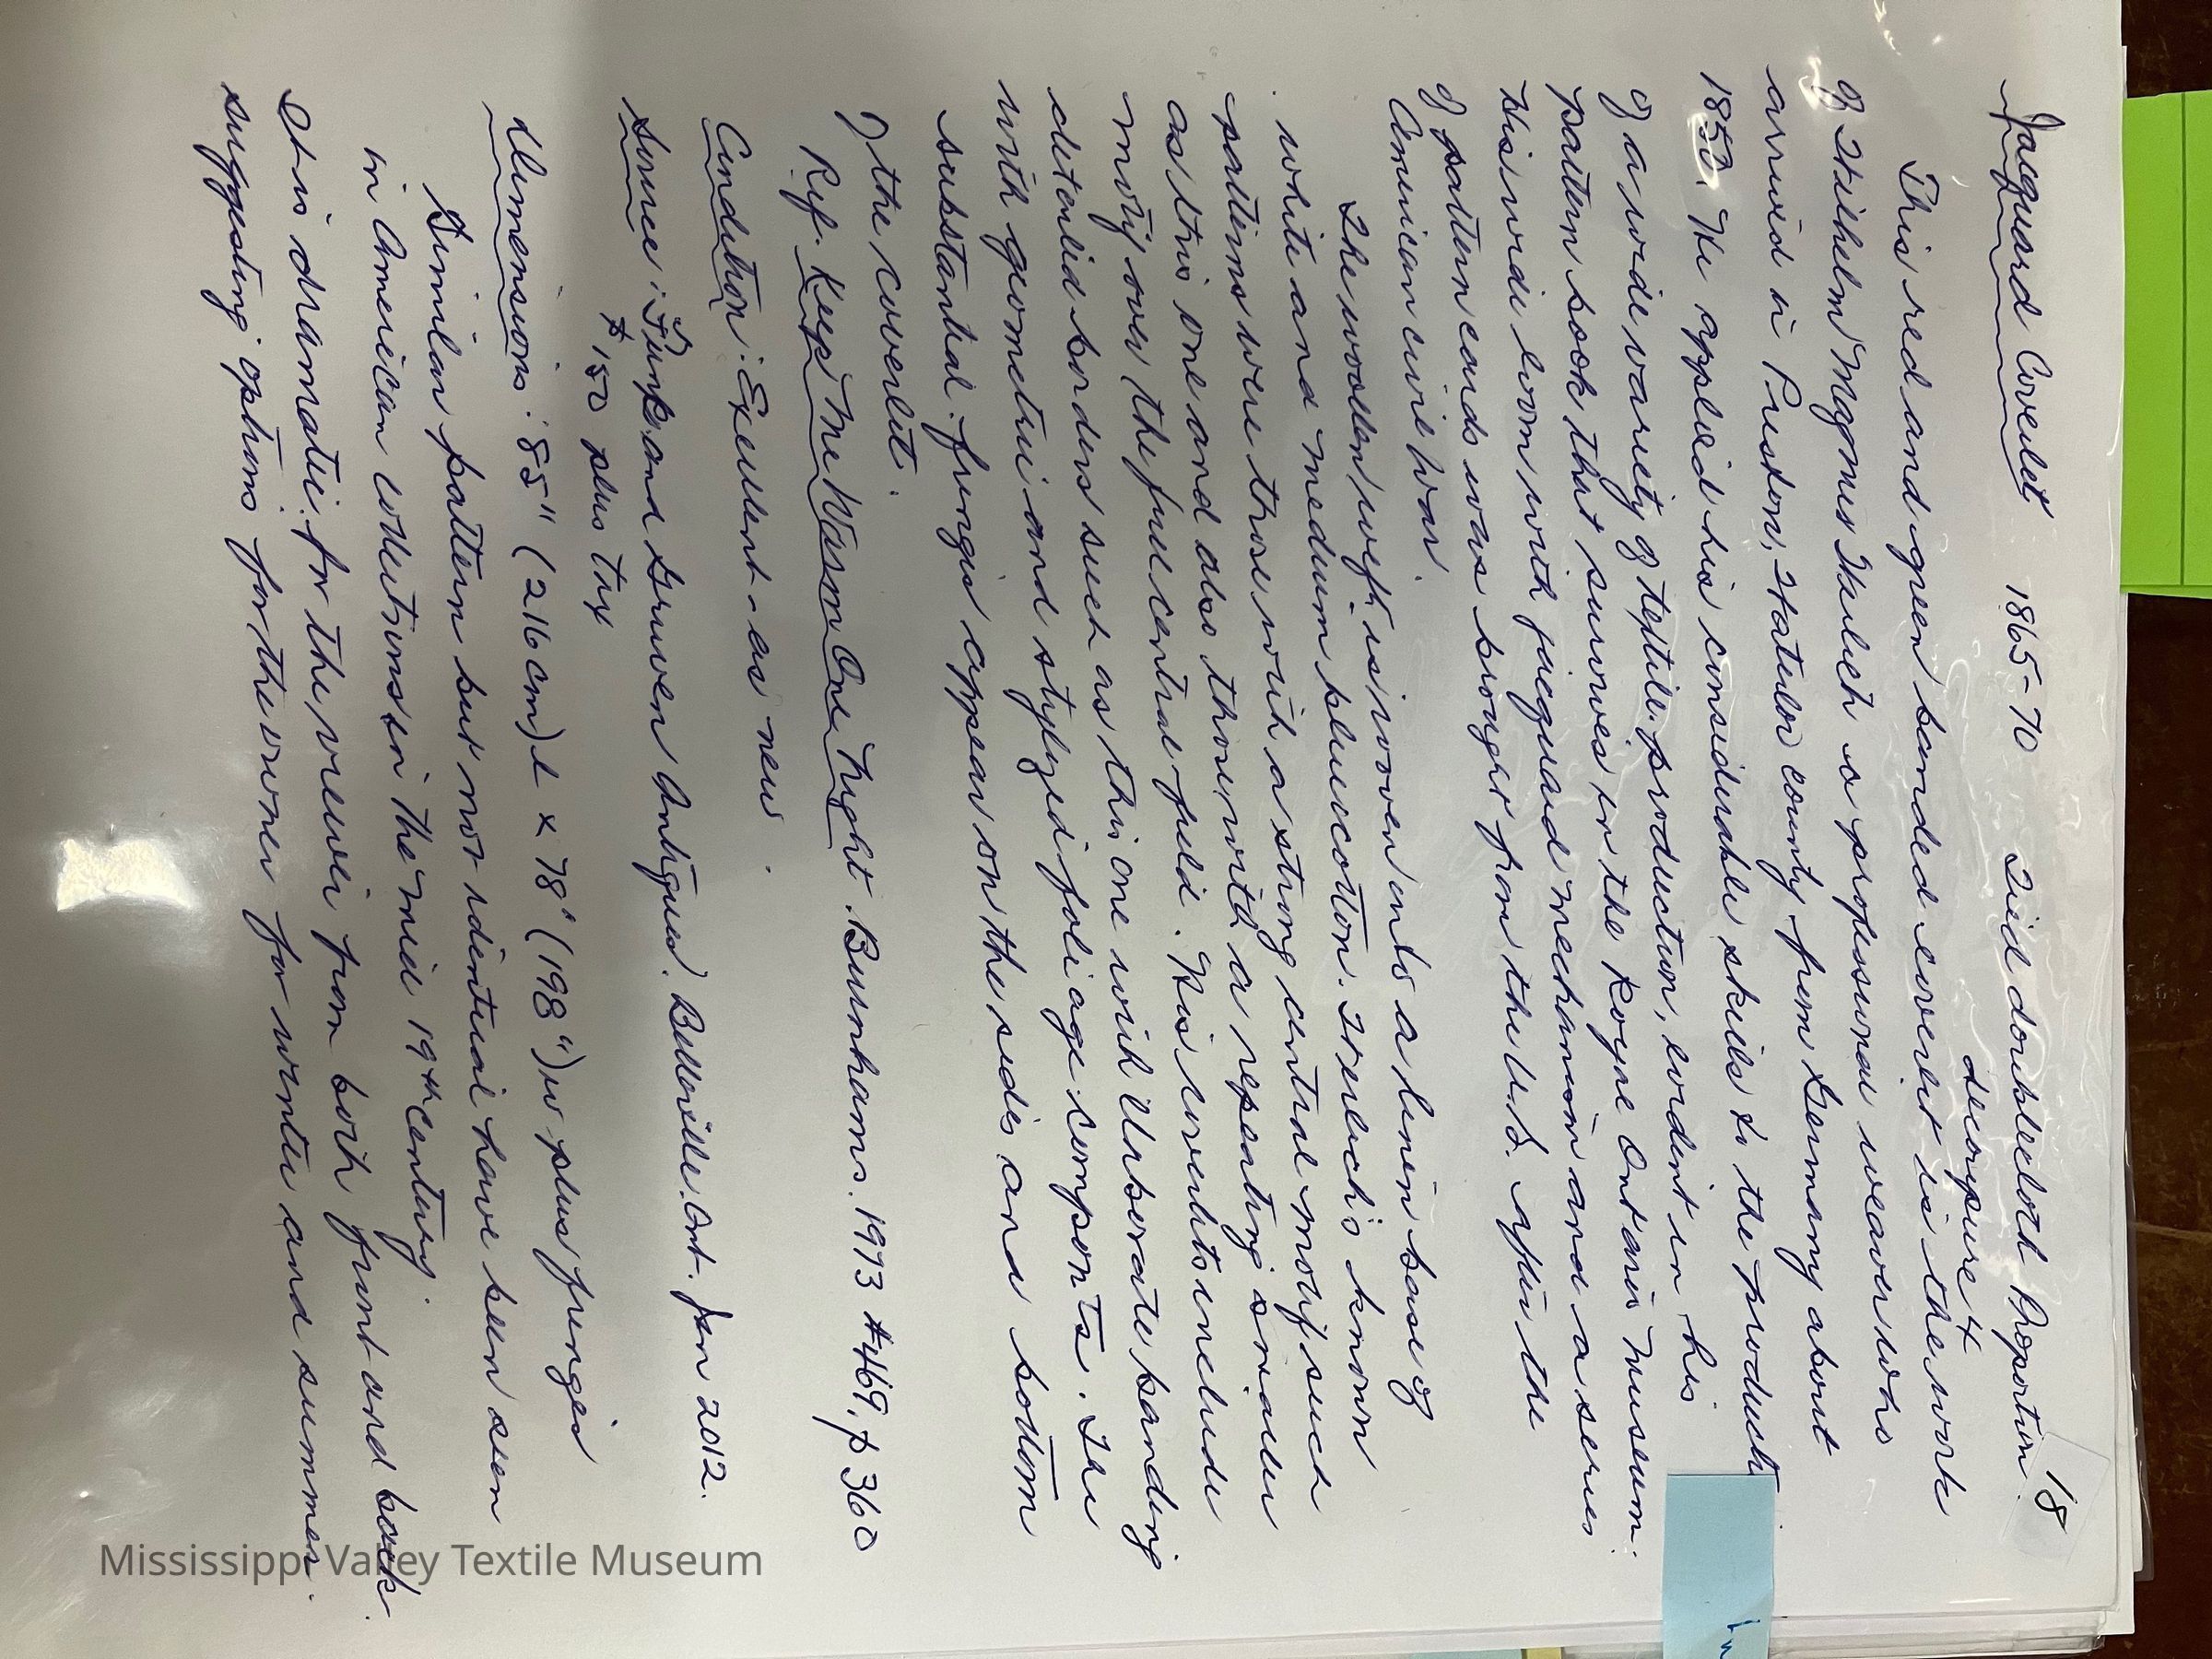 18
Jacquard Coverlet 1865-70 Tied doublecloth Proportion
decoupure 4
This red and green banded coverlet is the work
of Wilhelm Magnus Werlich a professional weaver who
arrived in Preston, Waterloo county from Germany about
1850. He applied his considerable skills to the product
of a wide variety of textile production, evident in his
pattern book that survives in the Royal Ontario Museum.
His wide loom with jacquard mechanism and a series
of pattern cards was brought from the U.S. after the
American civil war.
The woollen weft is woven onto a linen base of
white and medium blue cotton. Werlich's known
patterns were those with a strong central motif such
as this one and also those with a repeating smaller
motif over the full central field. His coverlets include
detailed borders such as this one with elaborate banding
with geometric and stylized foliage components. The
substantial fringes appear on the sides and bottom
of the coverlet.
Ref. Keep Me Warm One Night. Burnhams. 1973 #469, p 360
Condition: Excellent - as new.
Source: Funk and Gruven Antiques. Belleville. Ont. Jan 2012.
$150 plus tax
Dimensions: 85" (216 cm) l x 78" (198") w plus fringes
Similar pattern but not identical have been seen
in American collections in the mid 19th Century.
It is dramatic for the viewer from both front and back
suggesting options for the owner for winter and summer.
In
Mississippi Valley Textile Museum